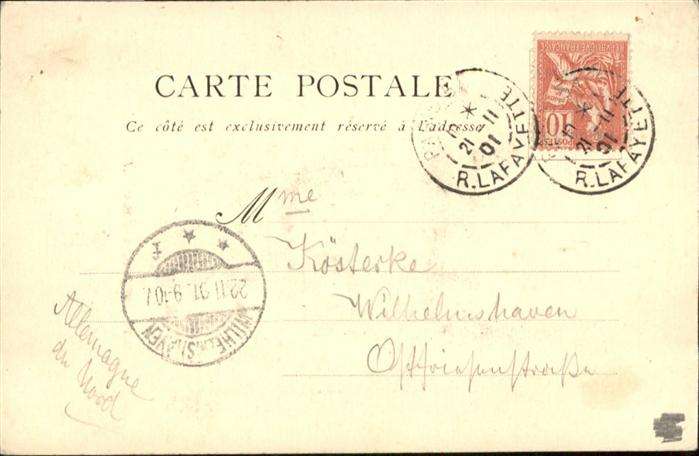 CARTE POSTALE
Ce côté est exclusivement réservé à l'adresse
R. LAFAYETTE
21 -11
01
R. LAFAYETTE
21 -11
01
10
POSTES
Mme
Kösterke
Wilhelmshaven
Ostfriesenstraße
Allemagne
du Nord
22.11.01. 9-10V.
WILHELMSHAVEN